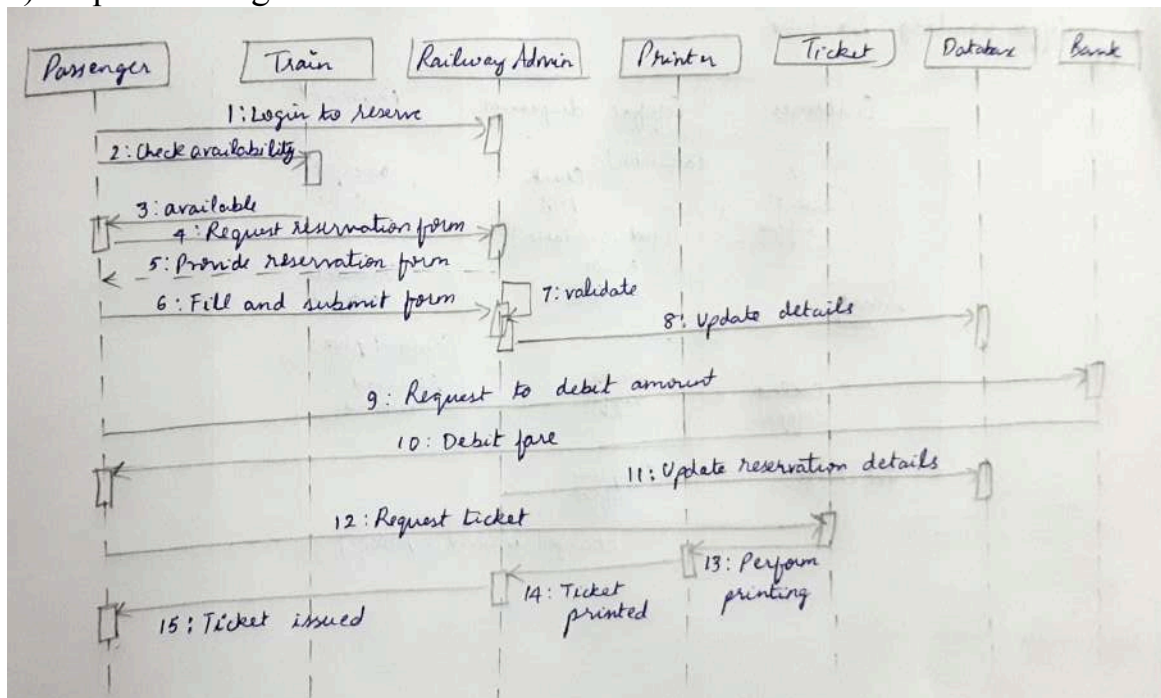 Passenger
Train
Railway Admin
Printer
Ticket
Database
Bank
1: Login to reserve
2: Check availability
3: available
4: Request reservation form
5: Provide reservation form
6: Fill and submit form
7: validate
8: Update details
9: Request to debit amount
10: Debit fare
11: Update reservation details
12: Request ticket
13: Perform
printing
14: Ticket
printed
15: Ticket issued